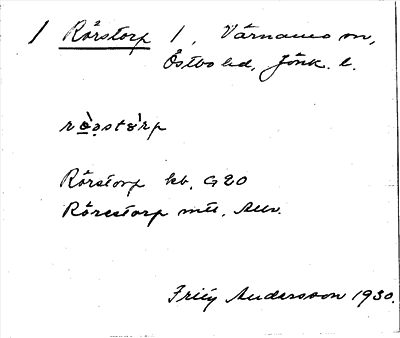 1 Rörstorp 1, Värnamo sn,
Östbo hd, Jönk. l.
Rörstorp kb, G20
Rörestorp mtl,
Andersson 1930.